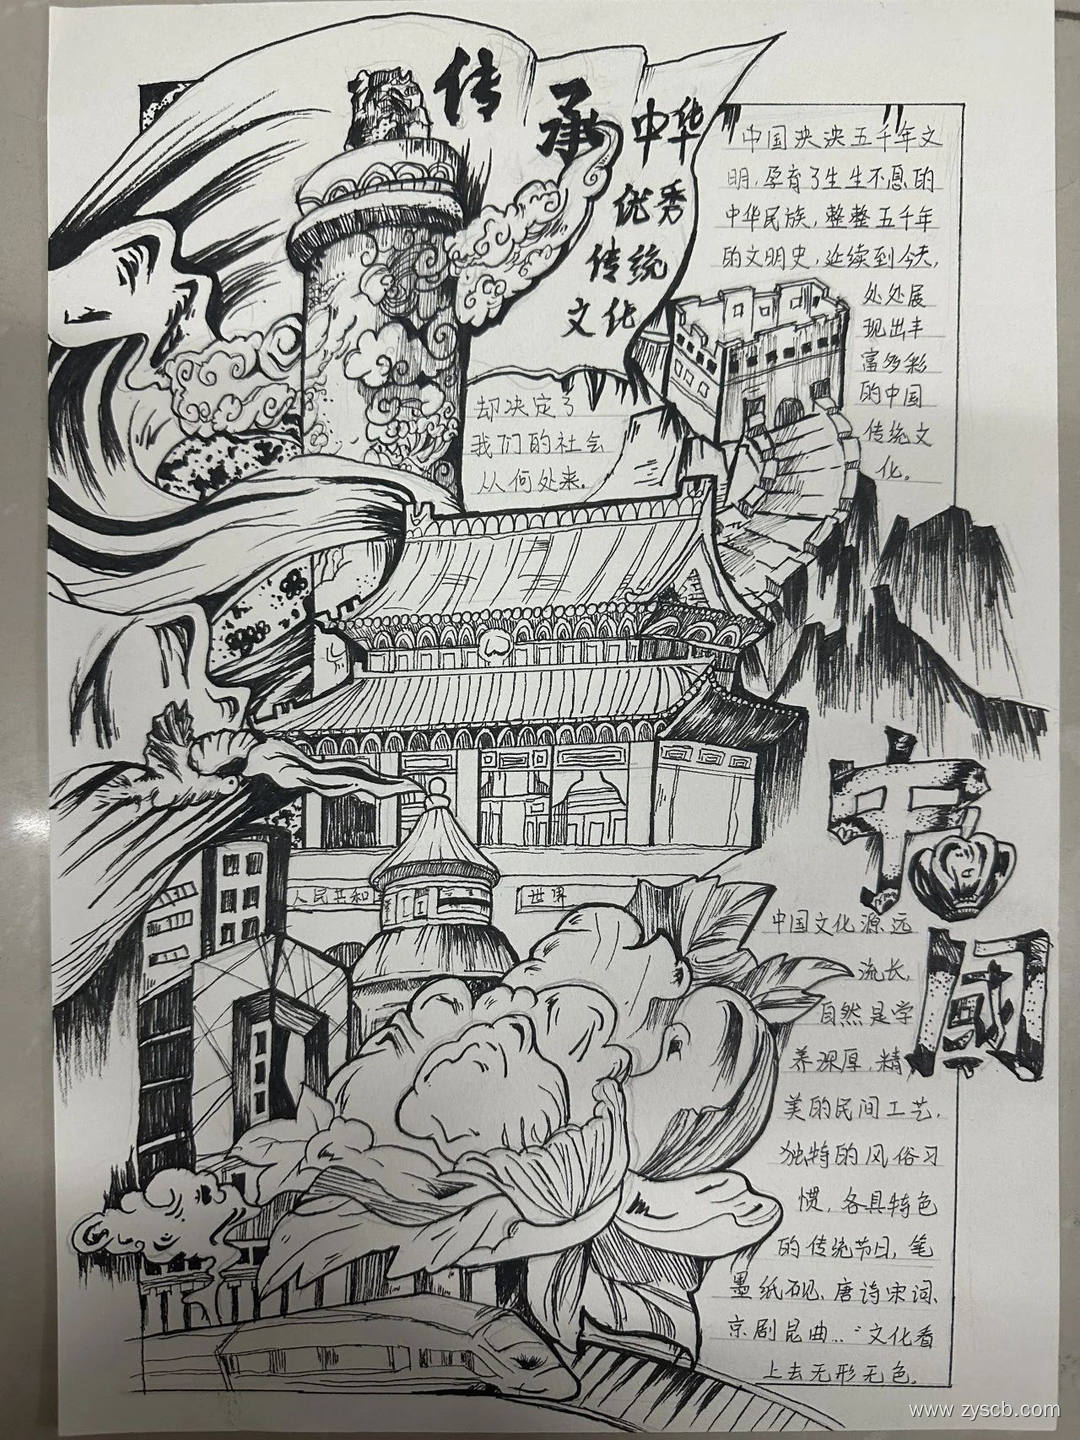 传承中华
优秀
传统
文化
中国泱泱五千年文
明,孕育了生生不息的
中华民族,整整五千年
的文明史,延续到今天,
处处展
现出丰
富多彩
的中国
传统文
化。
却决定了
我们的社会
从何处来。
人民共和
世界
中国
中国文化源远
流长,
自然是学
养深厚,精
美的民间工艺,
独特的风俗习
惯,各具特色
的传统节日,笔
墨纸砚、唐诗宋词、
京剧昆曲...:文化看
上去无形无色。
www.zyscb.com